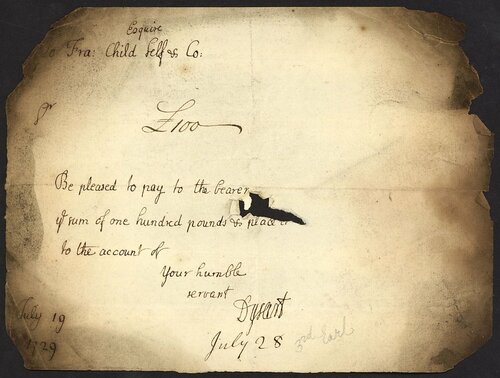 Esquire
To Fra: Child Self & Co:
Sr
£100
Be pleased to pay to the bearer
ye sum of one hundred pounds & place it
to the account of
Your humble
servant
Dysart
July 28
3rd Earl
July 19
1729